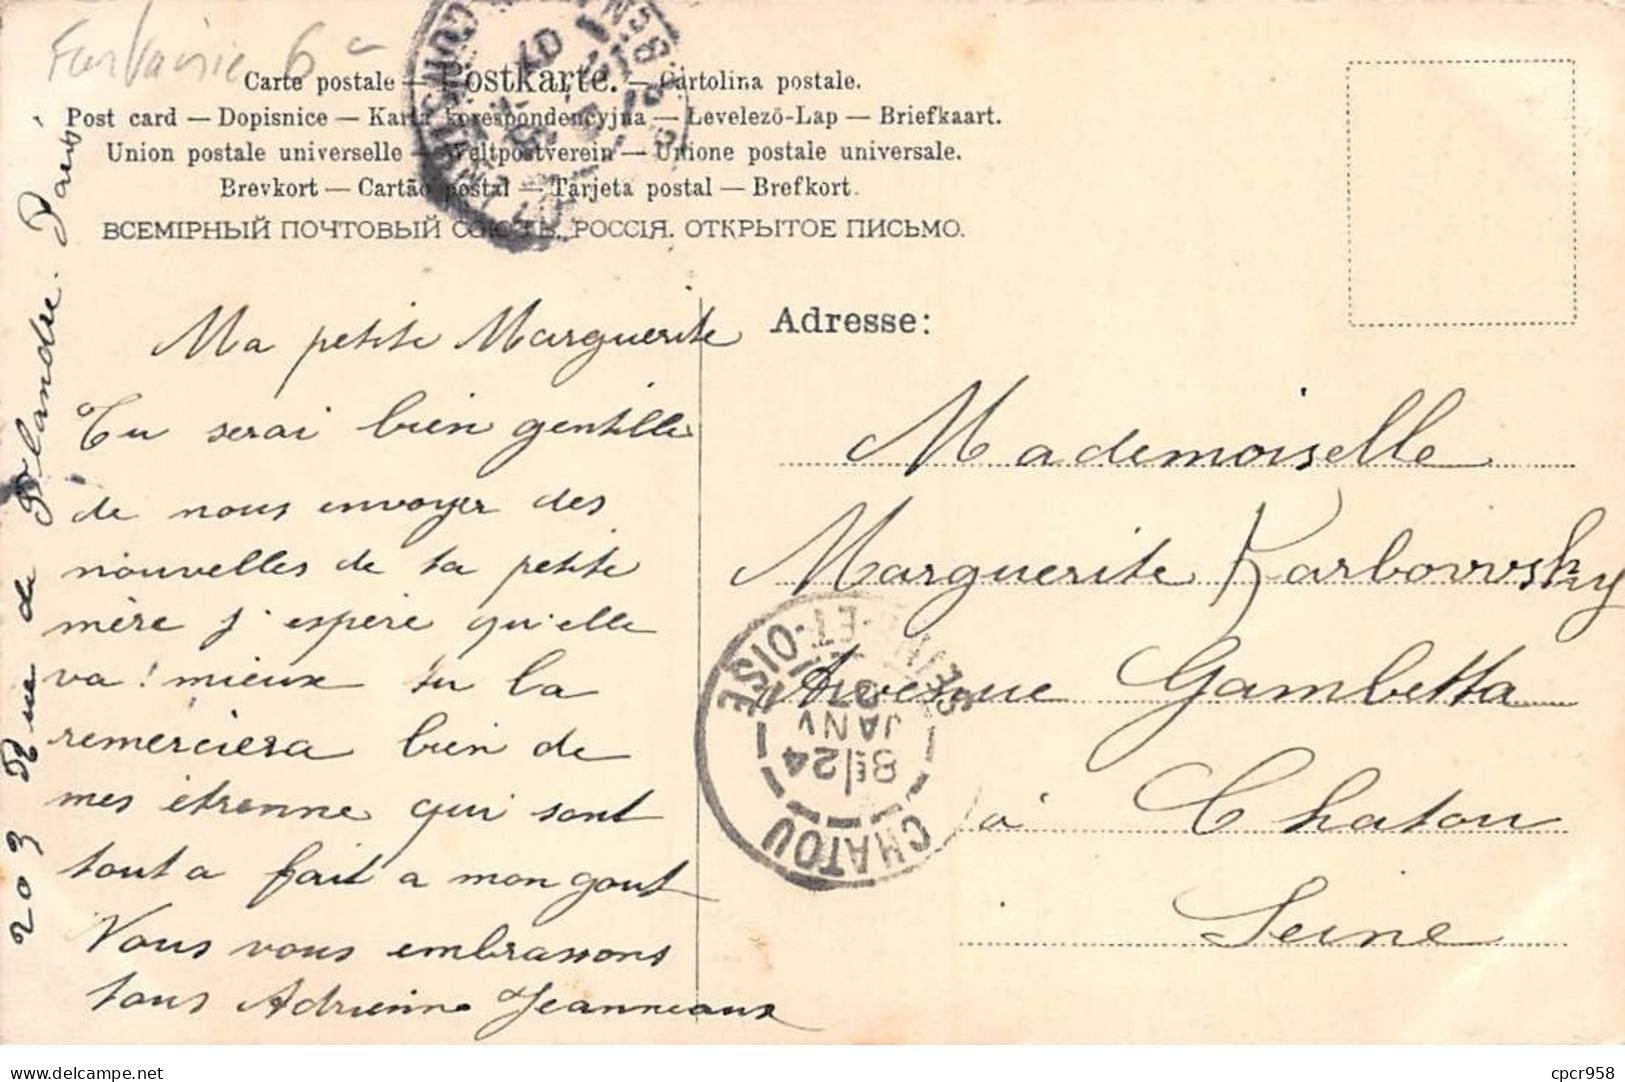 Fantaisie 6
Carte postale — Postkarte. — Cartolina postale.
Post card — Dopisnice — Karta korespondencyjna — Levelező-Lap — Briefkaart.
Union postale universelle — Weltpostverein — Unione postale universale.
Brevkort — Cartão postal — Tarjeta postal — Brefkort.
ВСЕМІРНЫЙ ПОЧТОВЫЙ СОЮЗЪ. РОССІЯ. ОТКРЫТОЕ ПИСЬМО.
Adresse:
Ma petite Marguerite
Tu serai bien gentille
de nous envoyer des
nouvelles de ta petite
mère j'espère qu'elle
va! mieux tu la
remerciera bien de
mes étrenne qui sont
tout a fait a mon gout
Nous vous embrassons
tous Adrienne Jeanneaux
203 Rue de Flandre. Paris
Mademoiselle
Marguerite Karbowsky
Avenue Gambetta
à Chatou
Seine
CHATOU
8E/24
JANV
07
SEINE-ET-OISE
cpcr958
www.delcampe.net